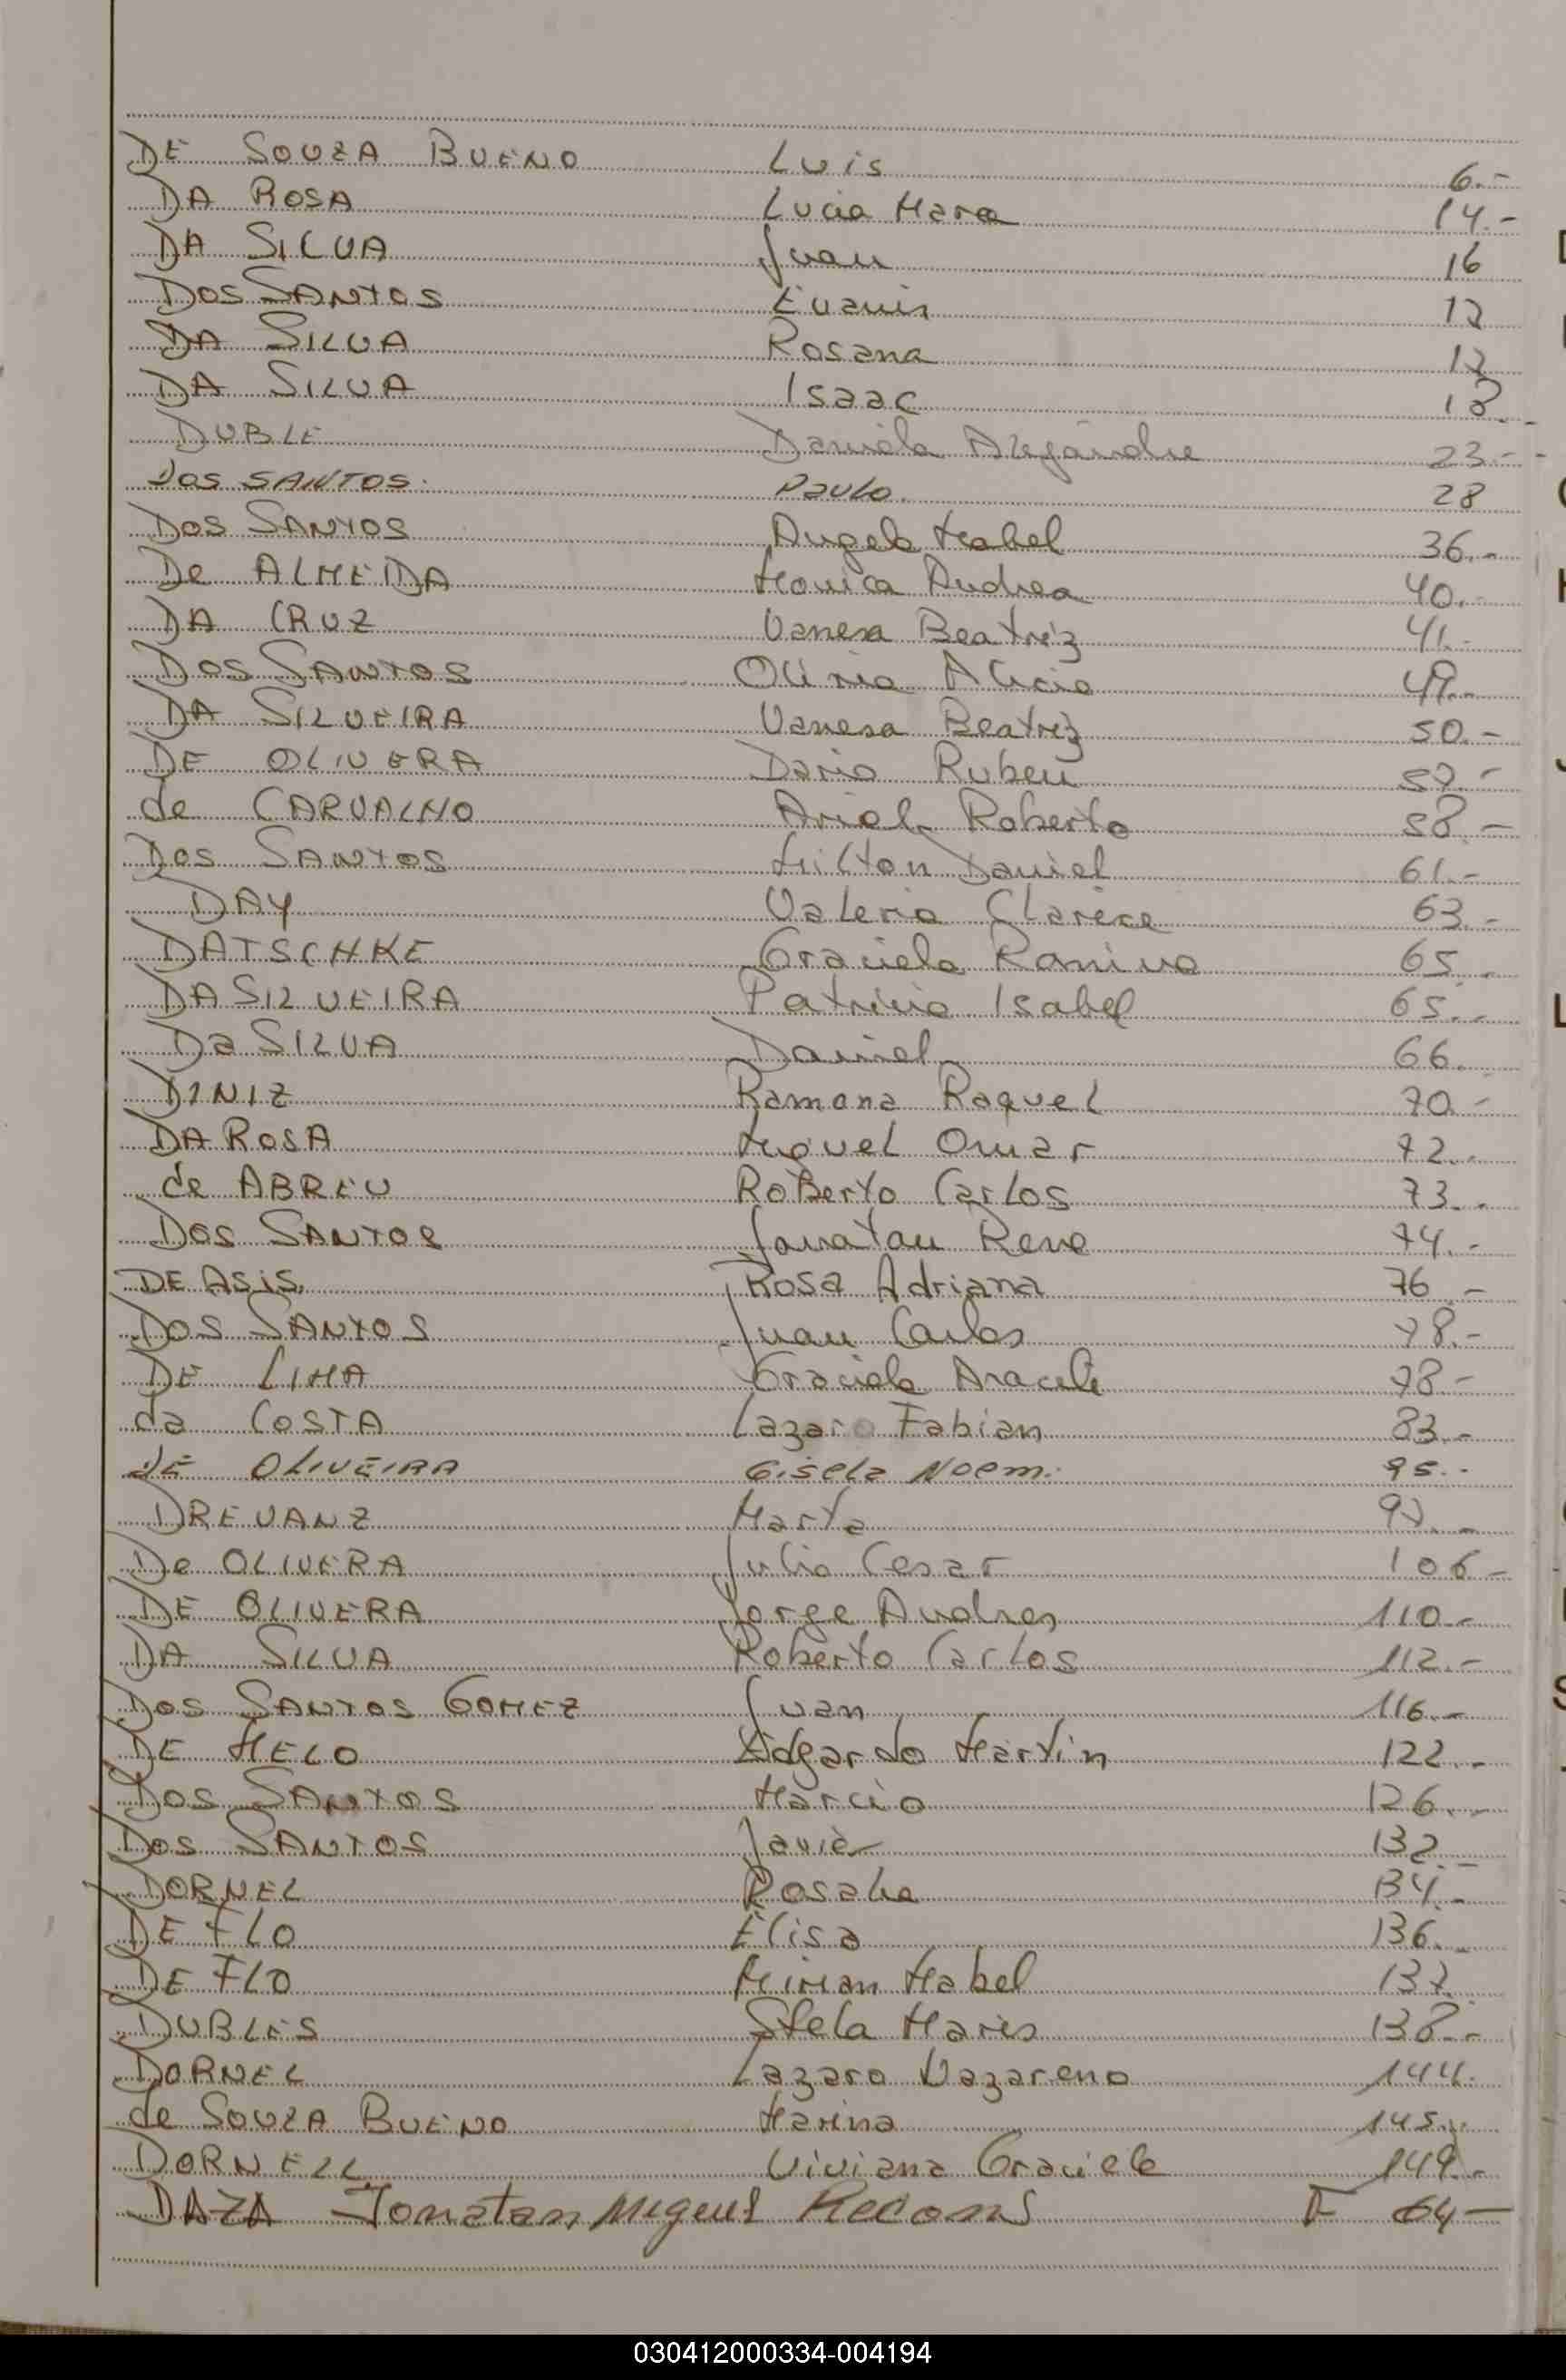 DE SOUZA BUENO Luis 6.-
DA ROSA Lucia Mara 14.-
DA SILVA Juan 16
DOS SANTOS Evanis 17
DA SILVA Rosana 17
DA SILVA Isaac 18.-
DUBLE Daniela Alejandre 23.-
DOS SANTOS. Paulo. 28
DOS SANTOS Angela Mabel 36.-
De ALMEIDA Monica Andrea 40.-
DA CRUZ Vanesa Beatriz 41.-
DOS SANTOS Olinia Alicia 49.-
DA SILVEIRA Vanesa Beatriz 50.-
DE OLIVERA Dario Ruben 57.-
de CARVALHO Ariel Roberto 58.-
DOS SANTOS Milton Daniel 61.-
DAY Valeria Clarice 63.-
DATSCHKE Graciela Ramina 65.-
DA SILVEIRA Patricia Isabel 65.-
Da SILVA Daniel 66.-
DINIZ Ramona Raquel 70.-
DA ROSA Miguel Omar 72.-
de ABREU Roberto Carlos 73.-
DOS SANTOS Jonatan Rene 74.-
DE ASIS. Rosa Adriana 76.-
DOS SANTOS Juan Carlos 78.-
DE LIMA Graciela Araceli 78-
da COSTA Lazaro Fabian 83.-
DE OLIVEIRA Gisela Noemi 95.-
DREVANZ Marta 97.-
De OLIVERA Julio Cesar 106-
DE OLIVERA Jorge Andres 110.-
DA SILVA Roberto Carlos 112.-
DOS SANTOS GOMEZ Juan 116.-
DE MELO Edgardo Martin 122.-
DOS SANTOS Marcio 126.-
DOS SANTOS Javier 132.-
DORNEL Rosalia 134.-
DE FLO Elisa 136.-
DE FLO Mirian Mabel 137.
DUBLES Stela Maris 138.-
DORNEL Lazaro Nazareno 144.
de SOUZA BUENO Marina 145.-
DORNELL Viviana Graciela 149.-
DAZA Jonatan Miguel F 64-
030412000334-004194